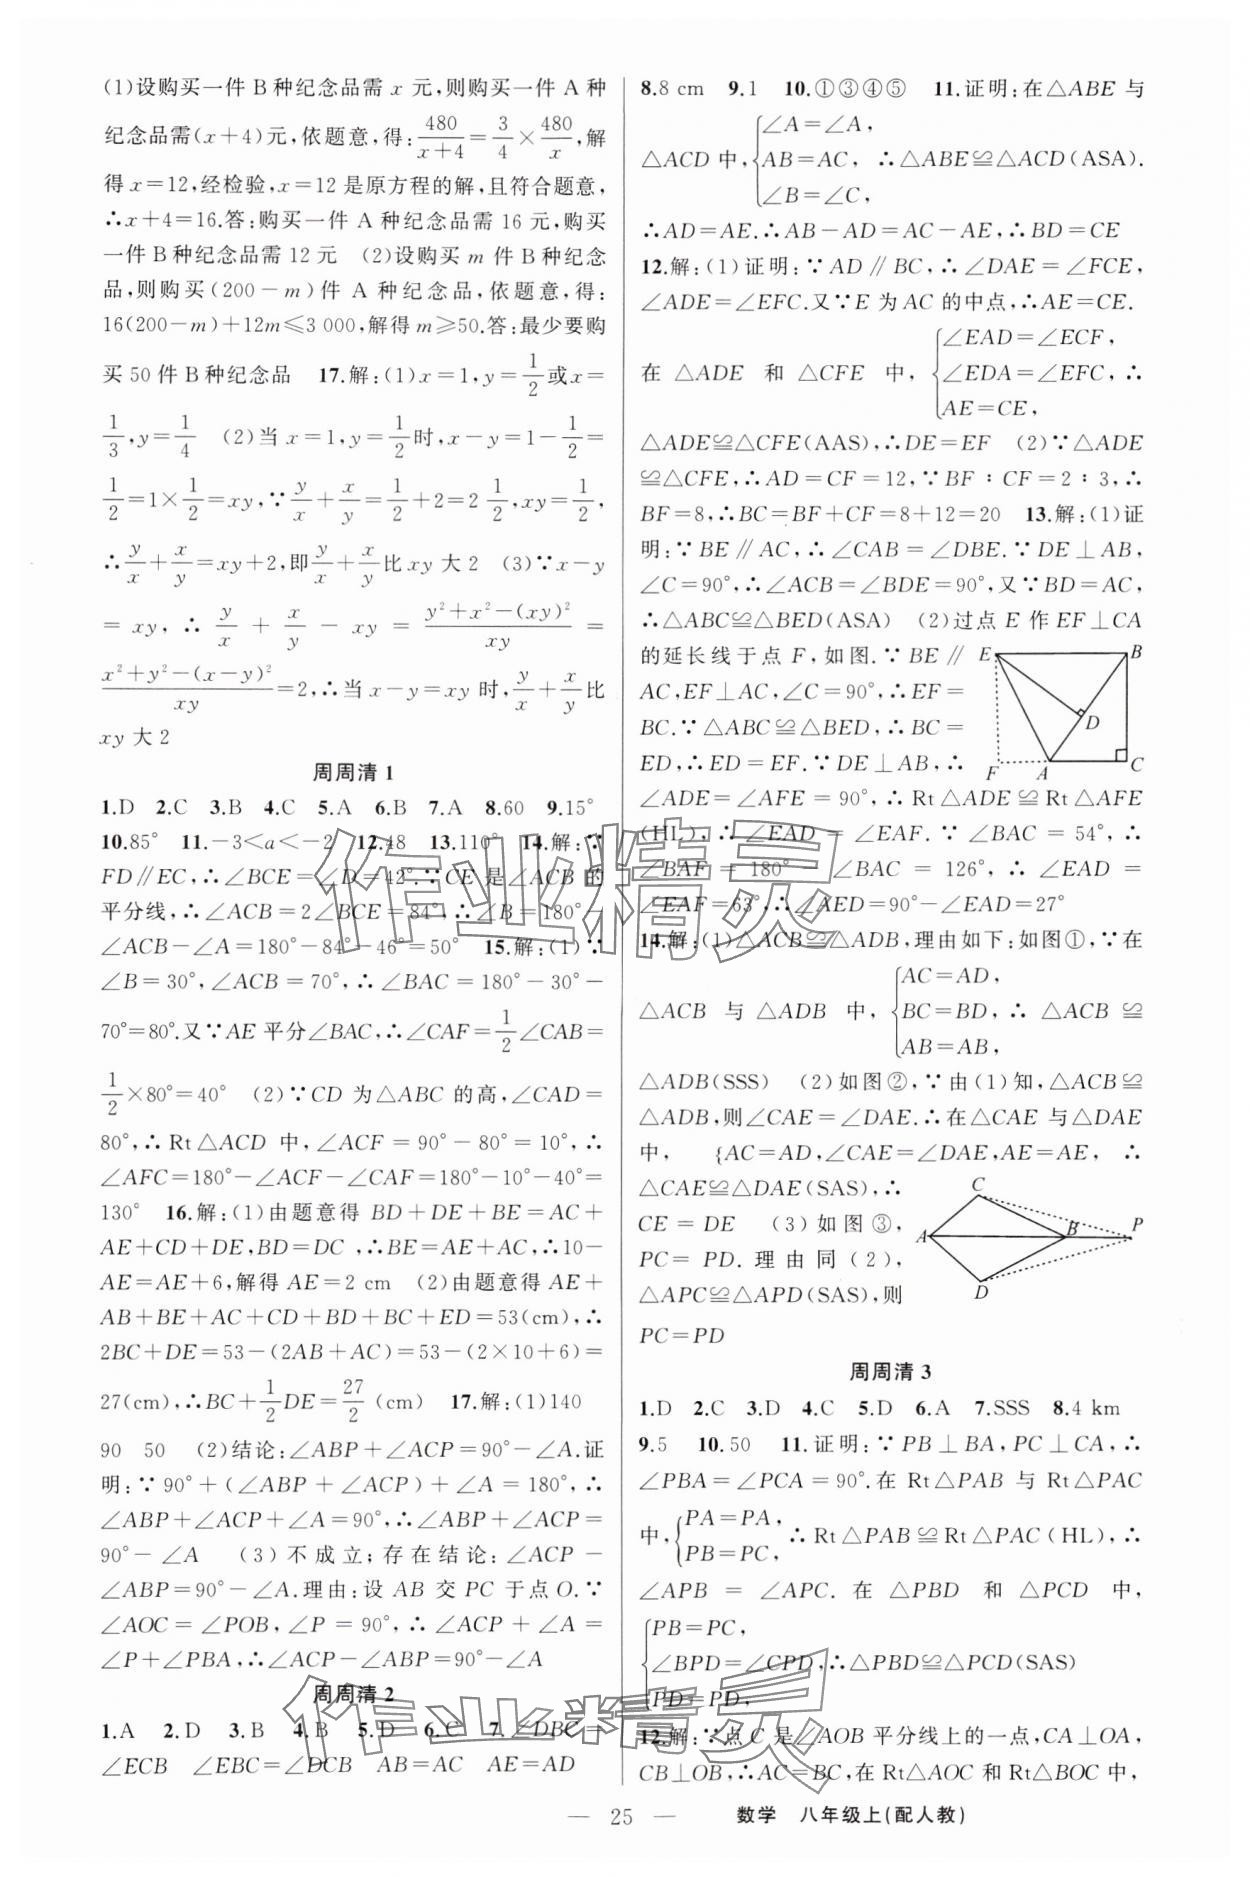 (1)设购买一件 B 种纪念品需 x 元,则购买一件 A 种
纪念品需(x+4)元,依题意,得:480/(x+4)=3/4×480/x,解
得 x=12,经检验,x=12 是原方程的解,且符合题意,
∴x+4=16.答:购买一件 A 种纪念品需 16 元,购买
一件 B 种纪念品需 12 元 (2)设购买 m 件 B 种纪念
品,则购买(200-m)件 A 种纪念品,依题意,得:
16(200-m)+12m≤3 000,解得 m≥50.答:最少要购
买 50 件 B 种纪念品 17.解:(1)x=1,y=1/2或x=
1/3,y=1/4 (2)当 x=1,y=1/2时,x-y=1-1/2=
1/2=1×1/2=xy,∵y/x+x/y=1/2+2=2 1/2,xy=1/2,
∴y/x+x/y=xy+2,即y/x+x/y比 xy 大 2 (3)∵x-y
=xy,∴y/x+x/y-xy=(y²+x²-(xy)²)/xy=
(x²+y²-(x-y)²)/xy=2,∴当 x-y=xy 时,y/x+x/y比
xy 大 2
周周清 1
1.D 2.C 3.B 4.C 5.A 6.B 7.A 8.60 9.15°
10.85° 11.-3<a<-2 12.48 13.110° 14.解:∵
FD∥EC,∴∠BCE=∠D=42°.∵CE 是∠ACB 的
平分线,∴∠ACB=2∠BCE=84°,∴∠B=180°-
∠ACB-∠A=180°-84°-46°=50° 15.解:(1)∵
∠B=30°,∠ACB=70°,∴∠BAC=180°-30°-
70°=80°.又∵AE 平分∠BAC,∴∠CAF=1/2∠CAB=
1/2×80°=40° (2)∵CD 为△ABC 的高,∠CAD=
80°,∴Rt△ACD 中,∠ACF=90°-80°=10°,∴
∠AFC=180°-∠ACF-∠CAF=180°-10°-40°=
130° 16.解:(1)由题意得 BD+DE+BE=AC+
AE+CD+DE,BD=DC,∴BE=AE+AC,∴10-
AE=AE+6,解得 AE=2 cm (2)由题意得 AE+
AB+BE+AC+CD+BD+BC+ED=53(cm),∴
2BC+DE=53-(2AB+AC)=53-(2×10+6)=
27(cm),∴BC+1/2DE=27/2(cm) 17.解:(1)140
90 50 (2)结论:∠ABP+∠ACP=90°-∠A.证
明:∵90°+(∠ABP+∠ACP)+∠A=180°,∴
∠ABP+∠ACP+∠A=90°,∴∠ABP+∠ACP=
90°-∠A (3)不成立;存在结论:∠ACP-
∠ABP=90°-∠A.理由:设 AB 交 PC 于点 O.∵
∠AOC=∠POB,∠P=90°,∴∠ACP+∠A=
∠P+∠PBA,∴∠ACP-∠ABP=90°-∠A
周周清 2
1.A 2.D 3.B 4.B 5.D 6.C 7.∠DBC=
∠ECB ∠EBC=∠DCB AB=AC AE=AD
8.8 cm 9.1 10.①③④⑤ 11.证明:在△ABE 与
△ACD 中,{∠A=∠A, AB=AC, ∠B=∠C, ∴△ABE≌△ACD(ASA).
∴AD=AE.∴AB-AD=AC-AE,∴BD=CE
12.解:(1)证明:∵AD∥BC,∴∠DAE=∠FCE,
∠ADE=∠EFC.又∵E 为 AC 的中点,∴AE=CE.
在 △ADE 和 △CFE 中,{∠EAD=∠ECF, ∠EDA=∠EFC, AE=CE, ∴
△ADE≌△CFE(AAS),∴DE=EF (2)∵△ADE
≌△CFE,∴AD=CF=12,∵BF∶CF=2∶3,∴
BF=8,∴BC=BF+CF=8+12=20 13.解:(1)证
明:∵BE∥AC,∴∠CAB=∠DBE.∵DE⊥AB,
∠C=90°,∴∠ACB=∠BDE=90°,又∵BD=AC,
∴△ABC≌△BED(ASA) (2)过点 E 作 EF⊥CA
的延长线于点 F,如图.∵BE∥
AC,EF⊥AC,∠C=90°,∴EF=
BC.∵△ABC≌△BED,∴BC=
ED,∴ED=EF.∵DE⊥AB,∴
E B D F A C
∠ADE=∠AFE=90°,∴Rt△ADE≌Rt△AFE
(HL),∴∠EAD=∠EAF.∵∠BAC=54°,∴
∠BAF=180°-∠BAC=126°,∴∠EAD=
∠EAF=63°,∴∠AED=90°-∠EAD=27°
14.解:(1)△ACB≌△ADB,理由如下:如图①,∵在
△ACB 与 △ADB 中,{AC=AD, BC=BD, AB=AB, ∴△ACB≌
△ADB(SSS) (2)如图②,∵由(1)知,△ACB≌
△ADB,则∠CAE=∠DAE.∴在△CAE 与△DAE
中, {AC=AD,∠CAE=∠DAE,AE=AE, ∴
△CAE≌△DAE(SAS),∴
CE=DE (3)如图③,
PC=PD.理由同(2),
△APC≌△APD(SAS),则
PC=PD
C A B P D
周周清 3
1.D 2.C 3.D 4.C 5.D 6.A 7.SSS 8.4 km
9.5 10.50 11.证明:∵PB⊥BA,PC⊥CA,∴
∠PBA=∠PCA=90°.在 Rt△PAB 与 Rt△PAC
中,{PA=PA, PB=PC, ∴Rt△PAB≌Rt△PAC(HL),∴
∠APB=∠APC.在 △PBD 和 △PCD 中,
{PB=PC, ∠BPD=∠CPD, PD=PD, ∴△PBD≌△PCD(SAS)
12.解:∵点 C 是∠AOB 平分线上的一点,CA⊥OA,
CB⊥OB,∴AC=BC,在 Rt△AOC 和 Rt△BOC 中,
作业精灵
作业精灵
— 25 — 数学 八年级上(配人教)